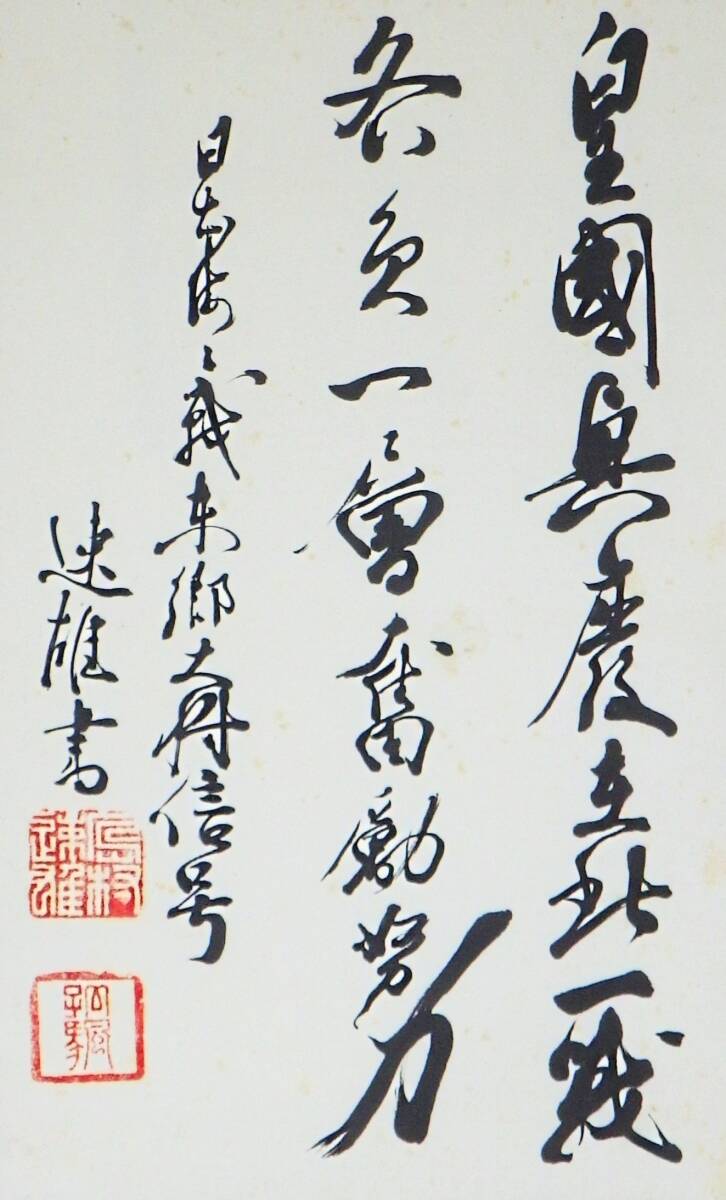 皇國興廢在此一戰
各員一層奮勵努力
日本海々戰東郷大将信号
速雄書